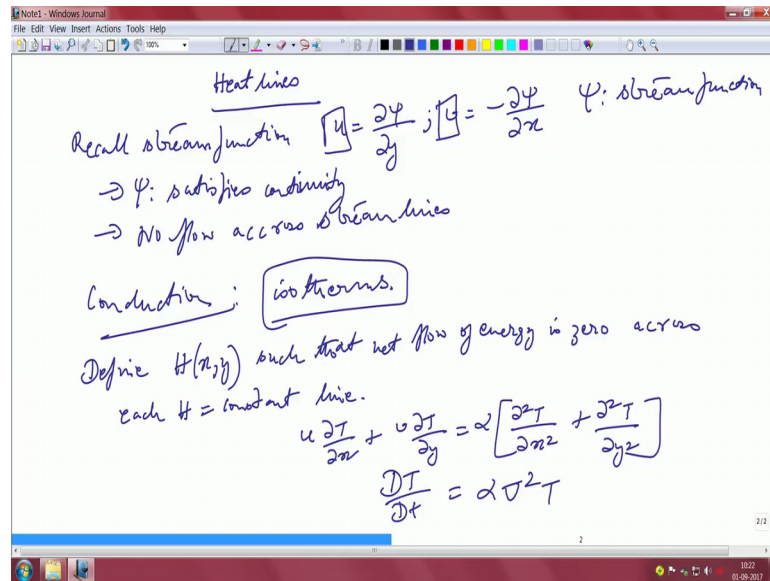 Note1 - Windows Journal
File Edit View Insert Actions Tools Help
100%
B I
Heat lines
Recall stream function u = ∂ψ/∂y ; v = -∂ψ/∂x ψ: stream function
→ ψ: satisfies continuity
→ No flow accross stream lines
Conduction: isotherms.
Define H(x,y) such that net flow of energy is zero across
each H = constant line.
u ∂T/∂x + v ∂T/∂y = α[∂²T/∂x² + ∂²T/∂y²]
DT/Dt = α∇²T
2/2
2
10:22
01-09-2017